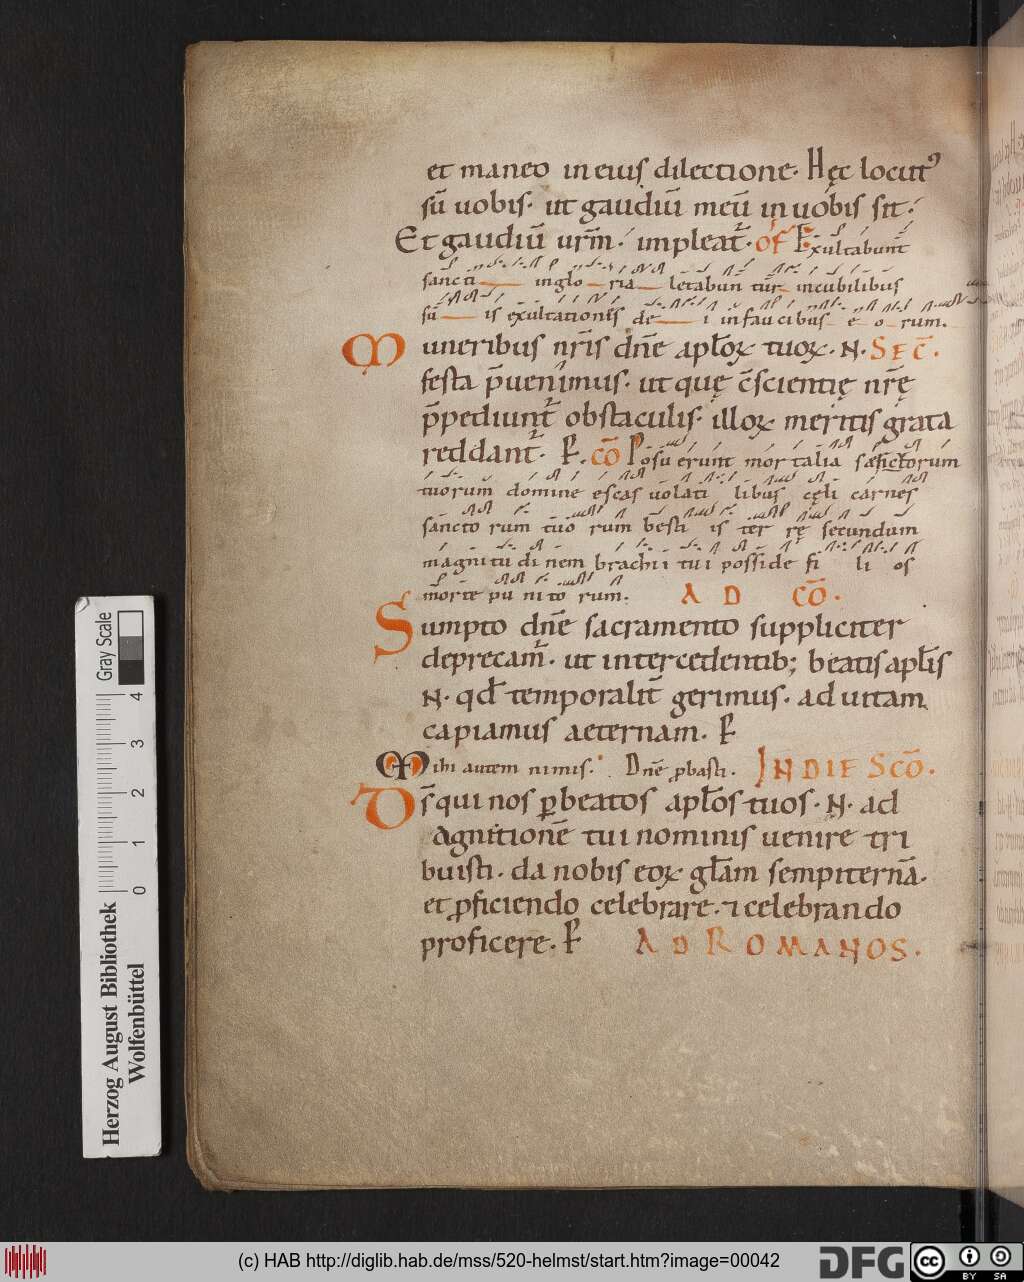 et maneo in eius dilectione. Hęc locut᾽
sū uobis. ut gaudiū meū in uobis sit.
Et gaudiū urm̄. impleat̄. OF Exultabunt
sancti in glo ria lętabun tur in cubilibus
sū is exultationes de i in faucibus e o rum.
Muneribus nr̄is dn̄e apl̄oꝝ tuoꝝ. N. SEC̄.
festa p̄uenimus. ut quę c̄scientię nr̄ę
p̄pediunt̄ obstaculis. illoꝝ meritis grata
reddant̄. P. CŌ Posuerunt mortalia sanctorum
tuorum domine escas uolati libus cęli carnes
sancto rum tuo rum besti is ter rę secundum
magnitudi nem brachii tui posside fi li os
morte pu nito rum. AD CŌ.
Sumpto dn̄e sacramento suppliciter
deprecam̄. ut intercedentib; beatis apl̄is
N. qd̄ temporalit̄ gerimus. ad uitam
capiamus aeternam. P
Mihi autem nimis. Dn̄e ꝓbasti. IN DIE SCŌ.
Ds̄ qui nos ꝑ beatos apl̄os tuos. N. ad
agnitionē tui nominis uenire tri
buisti. da nobis eoꝝ gl̄am sempiternā.
et ꝓficiendo celebrare. ⁊ celebrando
proficere. P AD ROMANOS.
Gray Scale
4
3
2
1
0
Herzog August Bibliothek
Wolfenbüttel
(c) HAB http://diglib.hab.de/mss/520-helmst/start.htm?image=00042
DFG
CC
BY SA